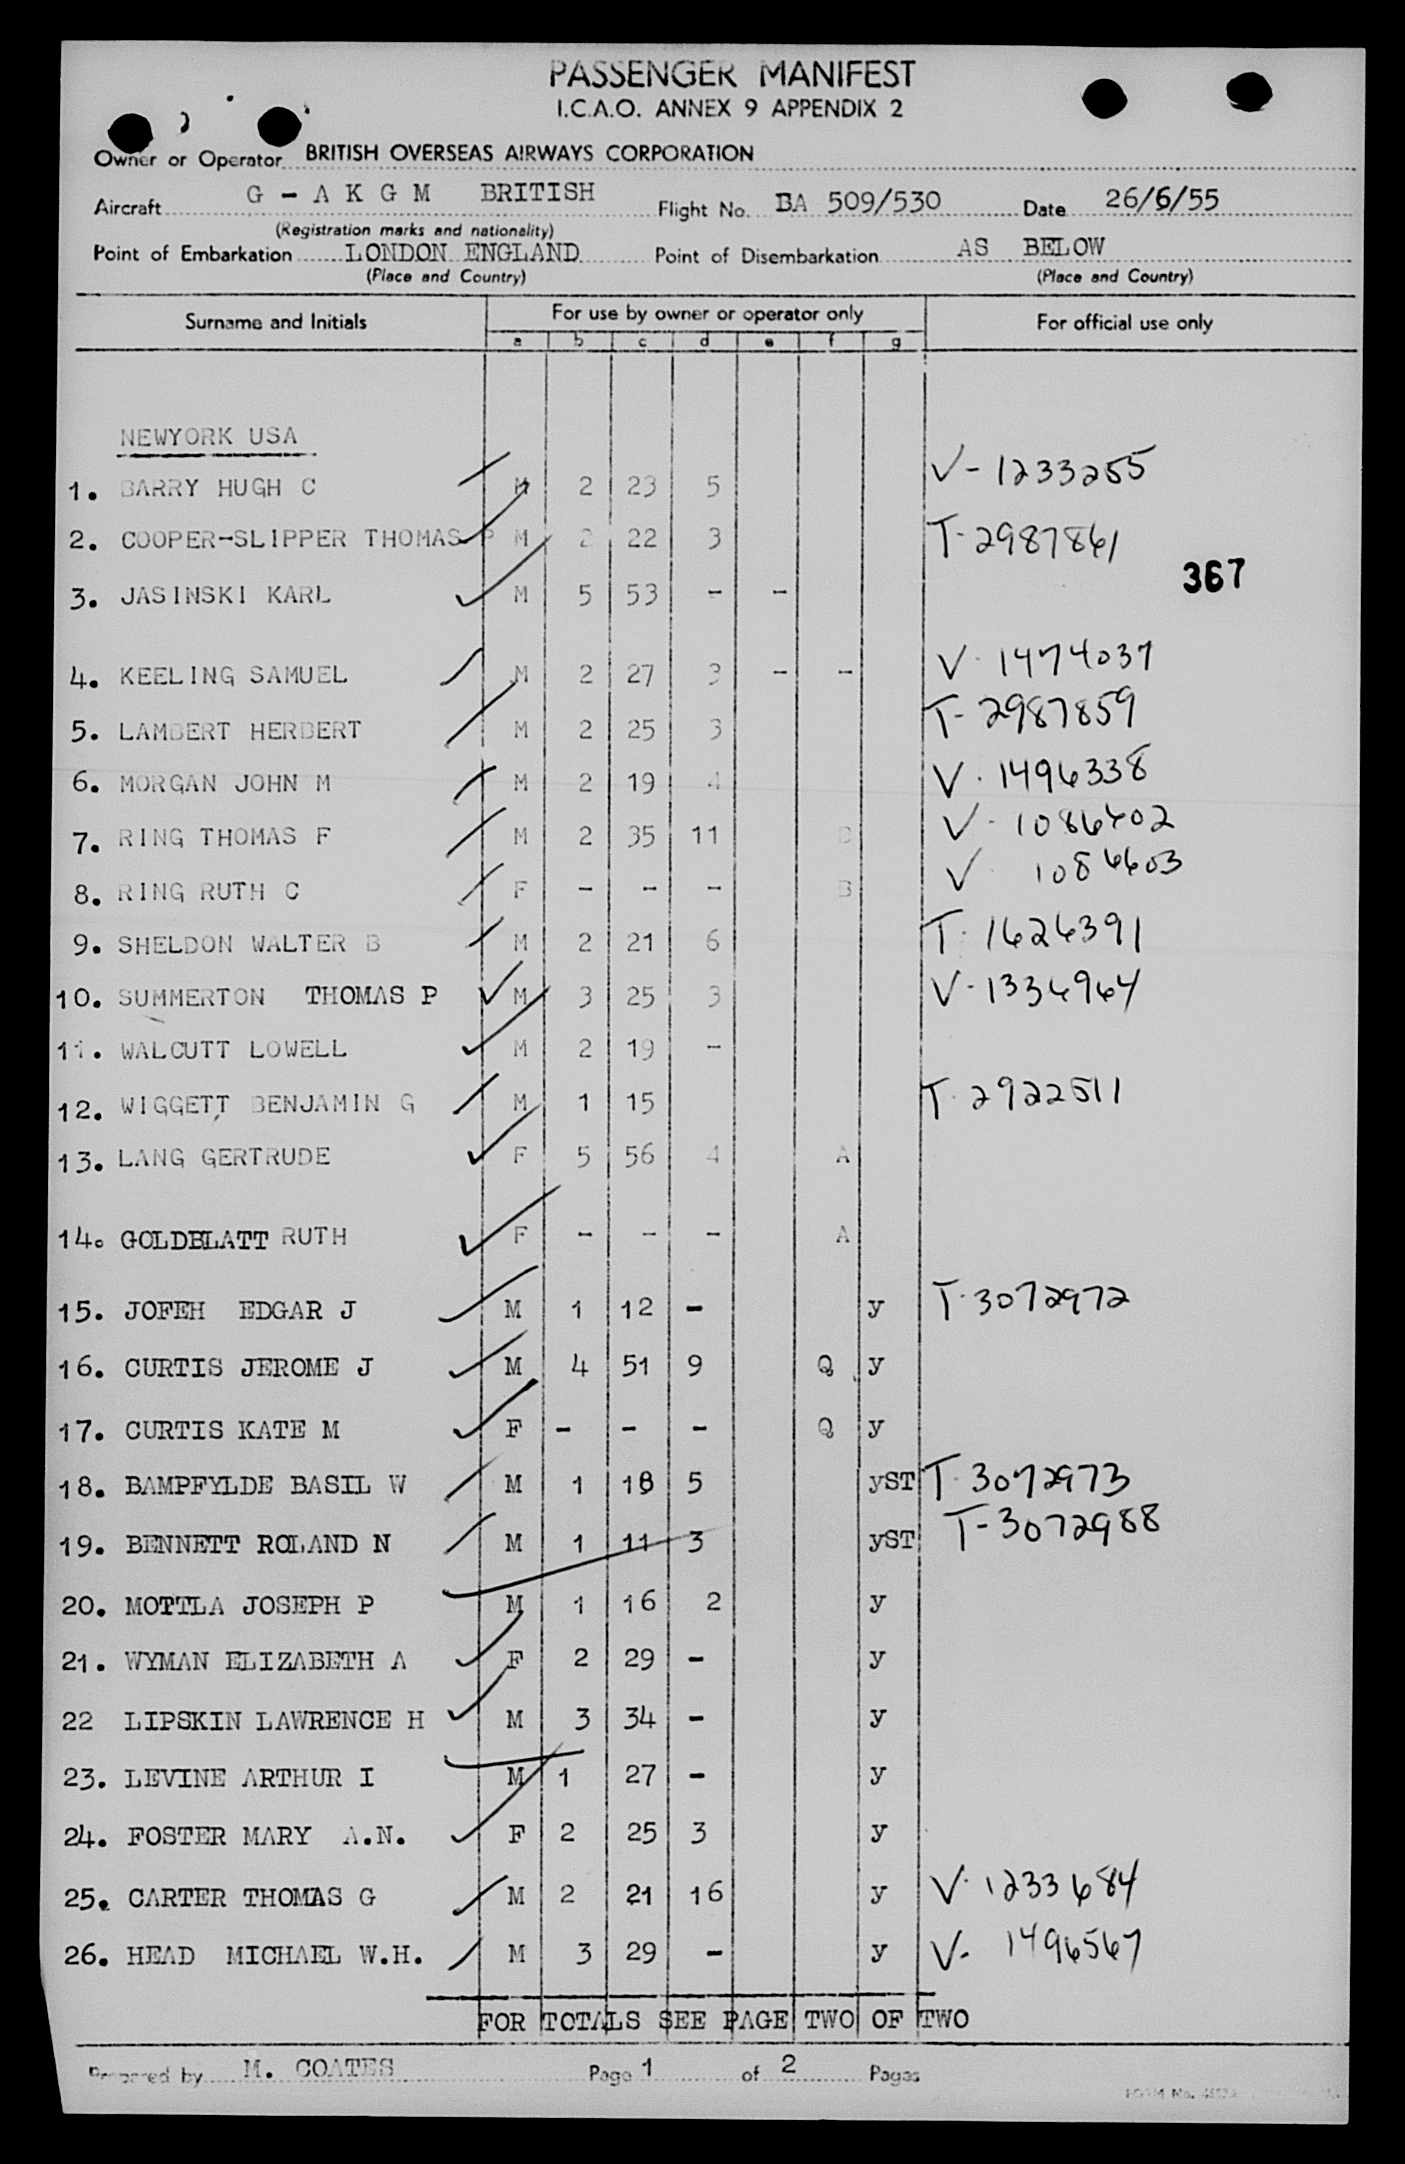 PASSENGER MANIFEST
I.C.A.O. ANNEX 9 APPENDIX 2
Owner or Operator BRITISH OVERSEAS AIRWAYS CORPORATION
Aircraft G - A K G M BRITISH Flight No. BA 509/530 Date 26/6/55
(Registration marks and nationality)
Point of Embarkation LONDON ENGLAND Point of Disembarkation AS BELOW
(Place and Country) (Place and Country)
Surname and Initials For use by owner or operator only For official use only
a b c d e f g
NEWYORK USA
1. BARRY HUGH C M 2 23 5 V-1233255
2. COOPER-SLIPPER THOMAS P M 2 22 3 T-2987861
367
3. JASINSKI KARL M 5 53 - -
4. KEELING SAMUEL M 2 27 3 - - V-1474037
5. LAMBERT HERBERT M 2 25 3 T-2987859
6. MORGAN JOHN M M 2 19 4 V-1496338
7. RING THOMAS F M 2 35 11 B V-1086402
8. RING RUTH C F - - - B V 1086603
9. SHELDON WALTER B M 2 21 6 T-1626391
10. SUMMERTON THOMAS P M 3 25 3 V-1336964
11. WALCUTT LOWELL M 2 19 -
12. WIGGETT BENJAMIN G M 1 15 T-2922511
13. LANG GERTRUDE F 5 56 4 A
14. GOLDBLATT RUTH F - - - A
15. JOFEH EDGAR J M 1 12 - y T-3072972
16. CURTIS JEROME J M 4 51 9 Q y
17. CURTIS KATE M F - - - Q y
18. BAMPFYLDE BASIL W M 1 18 5 yST T-3072973
19. BENNETT ROLAND N M 1 11 3 yST T-3072988
20. MOTTLA JOSEPH P M 1 16 2 y
21. WYMAN ELIZABETH A F 2 29 - y
22 LIPSKIN LAWRENCE H M 3 34 - y
23. LEVINE ARTHUR I M 1 27 - y
24. FOSTER MARY A.N. F 2 25 3 y
25. CARTER THOMAS G M 2 21 16 y V-1233684
26. HEAD MICHAEL W.H. M 3 29 - y V-1496567
FOR TOTALS SEE PAGE TWO OF TWO
Prepared by M. COATES Page 1 of 2 Pages
FORM No.